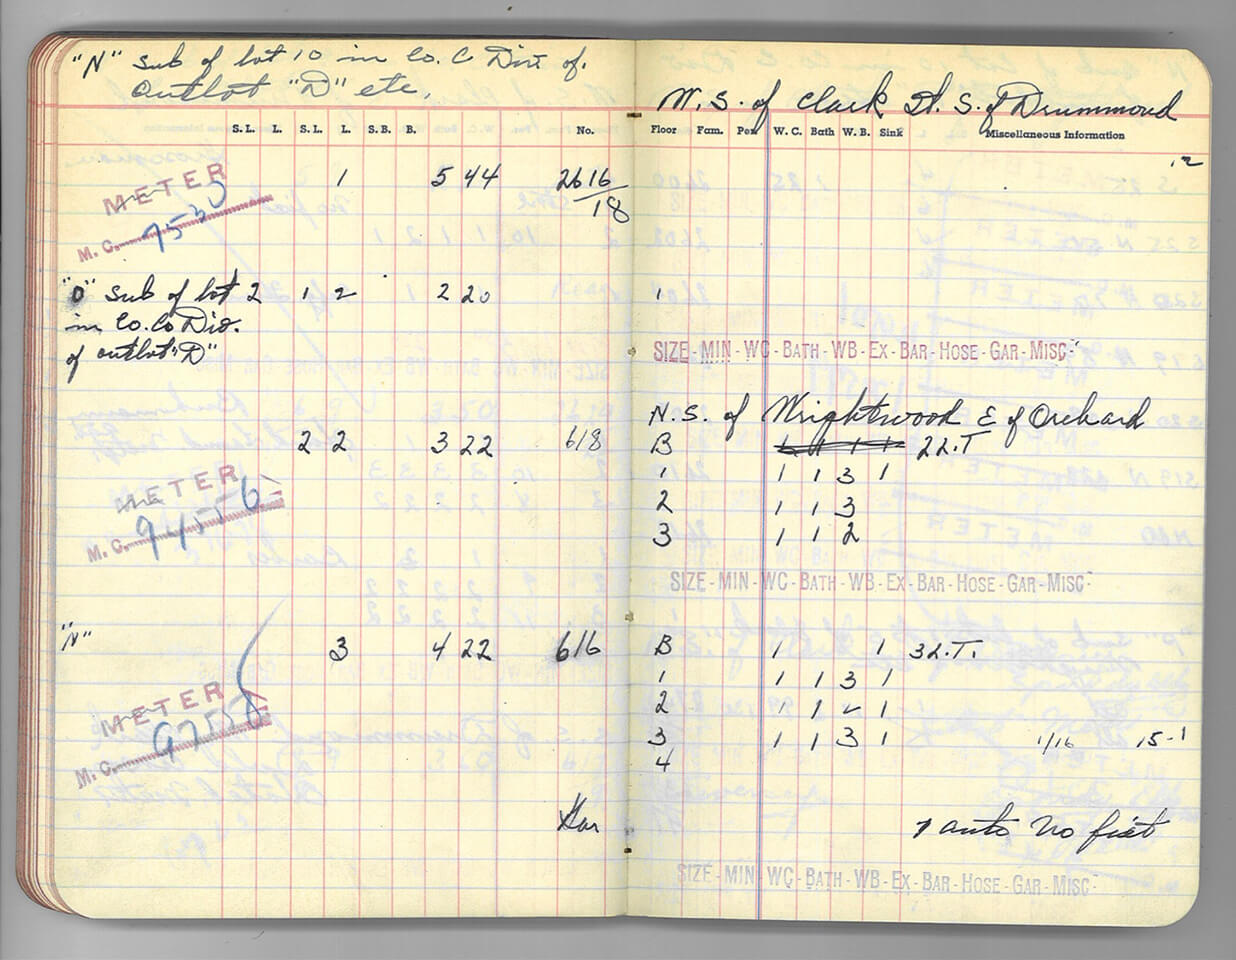 "N" Sub of lot 10 in Co. C Divi of.
Outlot "D" etc.
W. S. of Clark St. S. of Drummond
S. L. L. S. L. L. S. B. B. No.
Floor Fam. Per. W. C. Bath W. B. Sink Miscellaneous Information
12
METER 1 5 44 2616/18
M. C. 9535
"O" Sub of lot 2 1 2 2 20 1
in Co. Co Div.
of outlot "D"
SIZE - MIN - WC - BATH - WB - EX - BAR - HOSE - GAR - MISC -
N. S. of Wrightwood E of Orchard
2 2 3 22 618 B 1 1 1 1 22.T
METER 1 1 1 3 1
M. C. 94556 2 1 1 3
3 1 1 2
SIZE - MIN - WC - BATH - WB - EX - BAR - HOSE - GAR - MISC -
"N" 3 4 22 616 B 1 1 32.T.
1 1 1 3 1
METER 2 1 1 2 1
M. C. 97558 3 1 1 3 1 1/16 15-1
4
Gar 1 auto No fixt
SIZE - MIN - WC - BATH - WB - EX - BAR - HOSE - GAR - MISC -